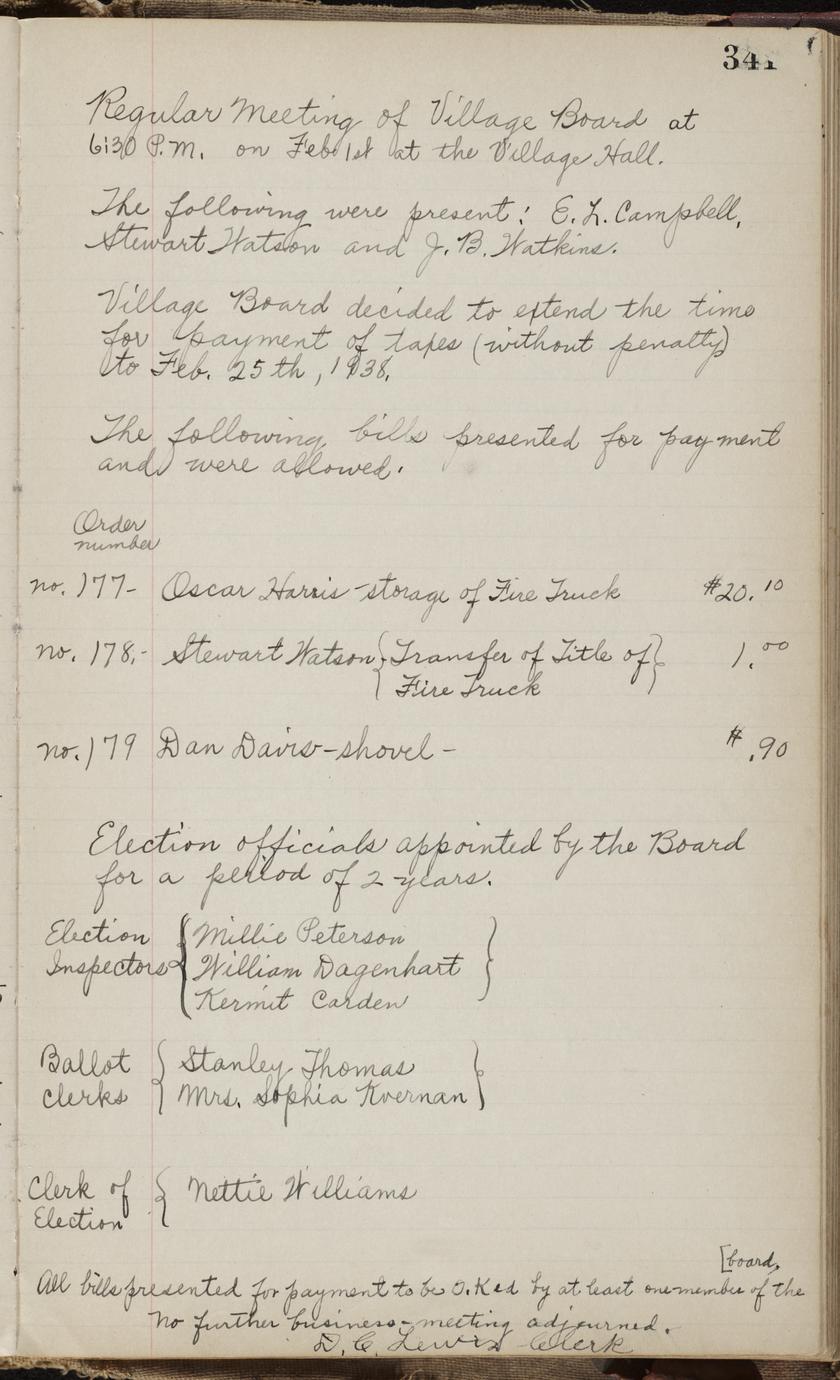 341
Regular Meeting of Village Board at
6:30 P.M. on Feb 1st at the Village Hall.
The following were present: E. L. Campbell,
Stewart Watson and J. B. Watkins.
Village Board decided to extend the time
for payment of taxes (without penalty)
to Feb. 25th, 1938.
The following bills presented for payment
and were allowed.
Order
number
no. 177- Oscar Harris - storage of Fire Truck $20.10
no. 178,- Stewart Watson {Transfer of Title of} 1.00
Fire Truck
no. 179 Dan Davis - shovel - # .90
Election officials appointed by the Board
for a period of 2 years.
Election { Millie Peterson }
Inspectors William Dagenhart
Kermit Carden
Ballot { Stanley Thomas }
Clerks Mrs. Sophia Kvernan
Clerk of { Nettie Williams
Election
[board,
All bills presented for payment to be O.Ked by at least one member of the
No further business - meeting adjourned.
D. C. Lewis Clerk